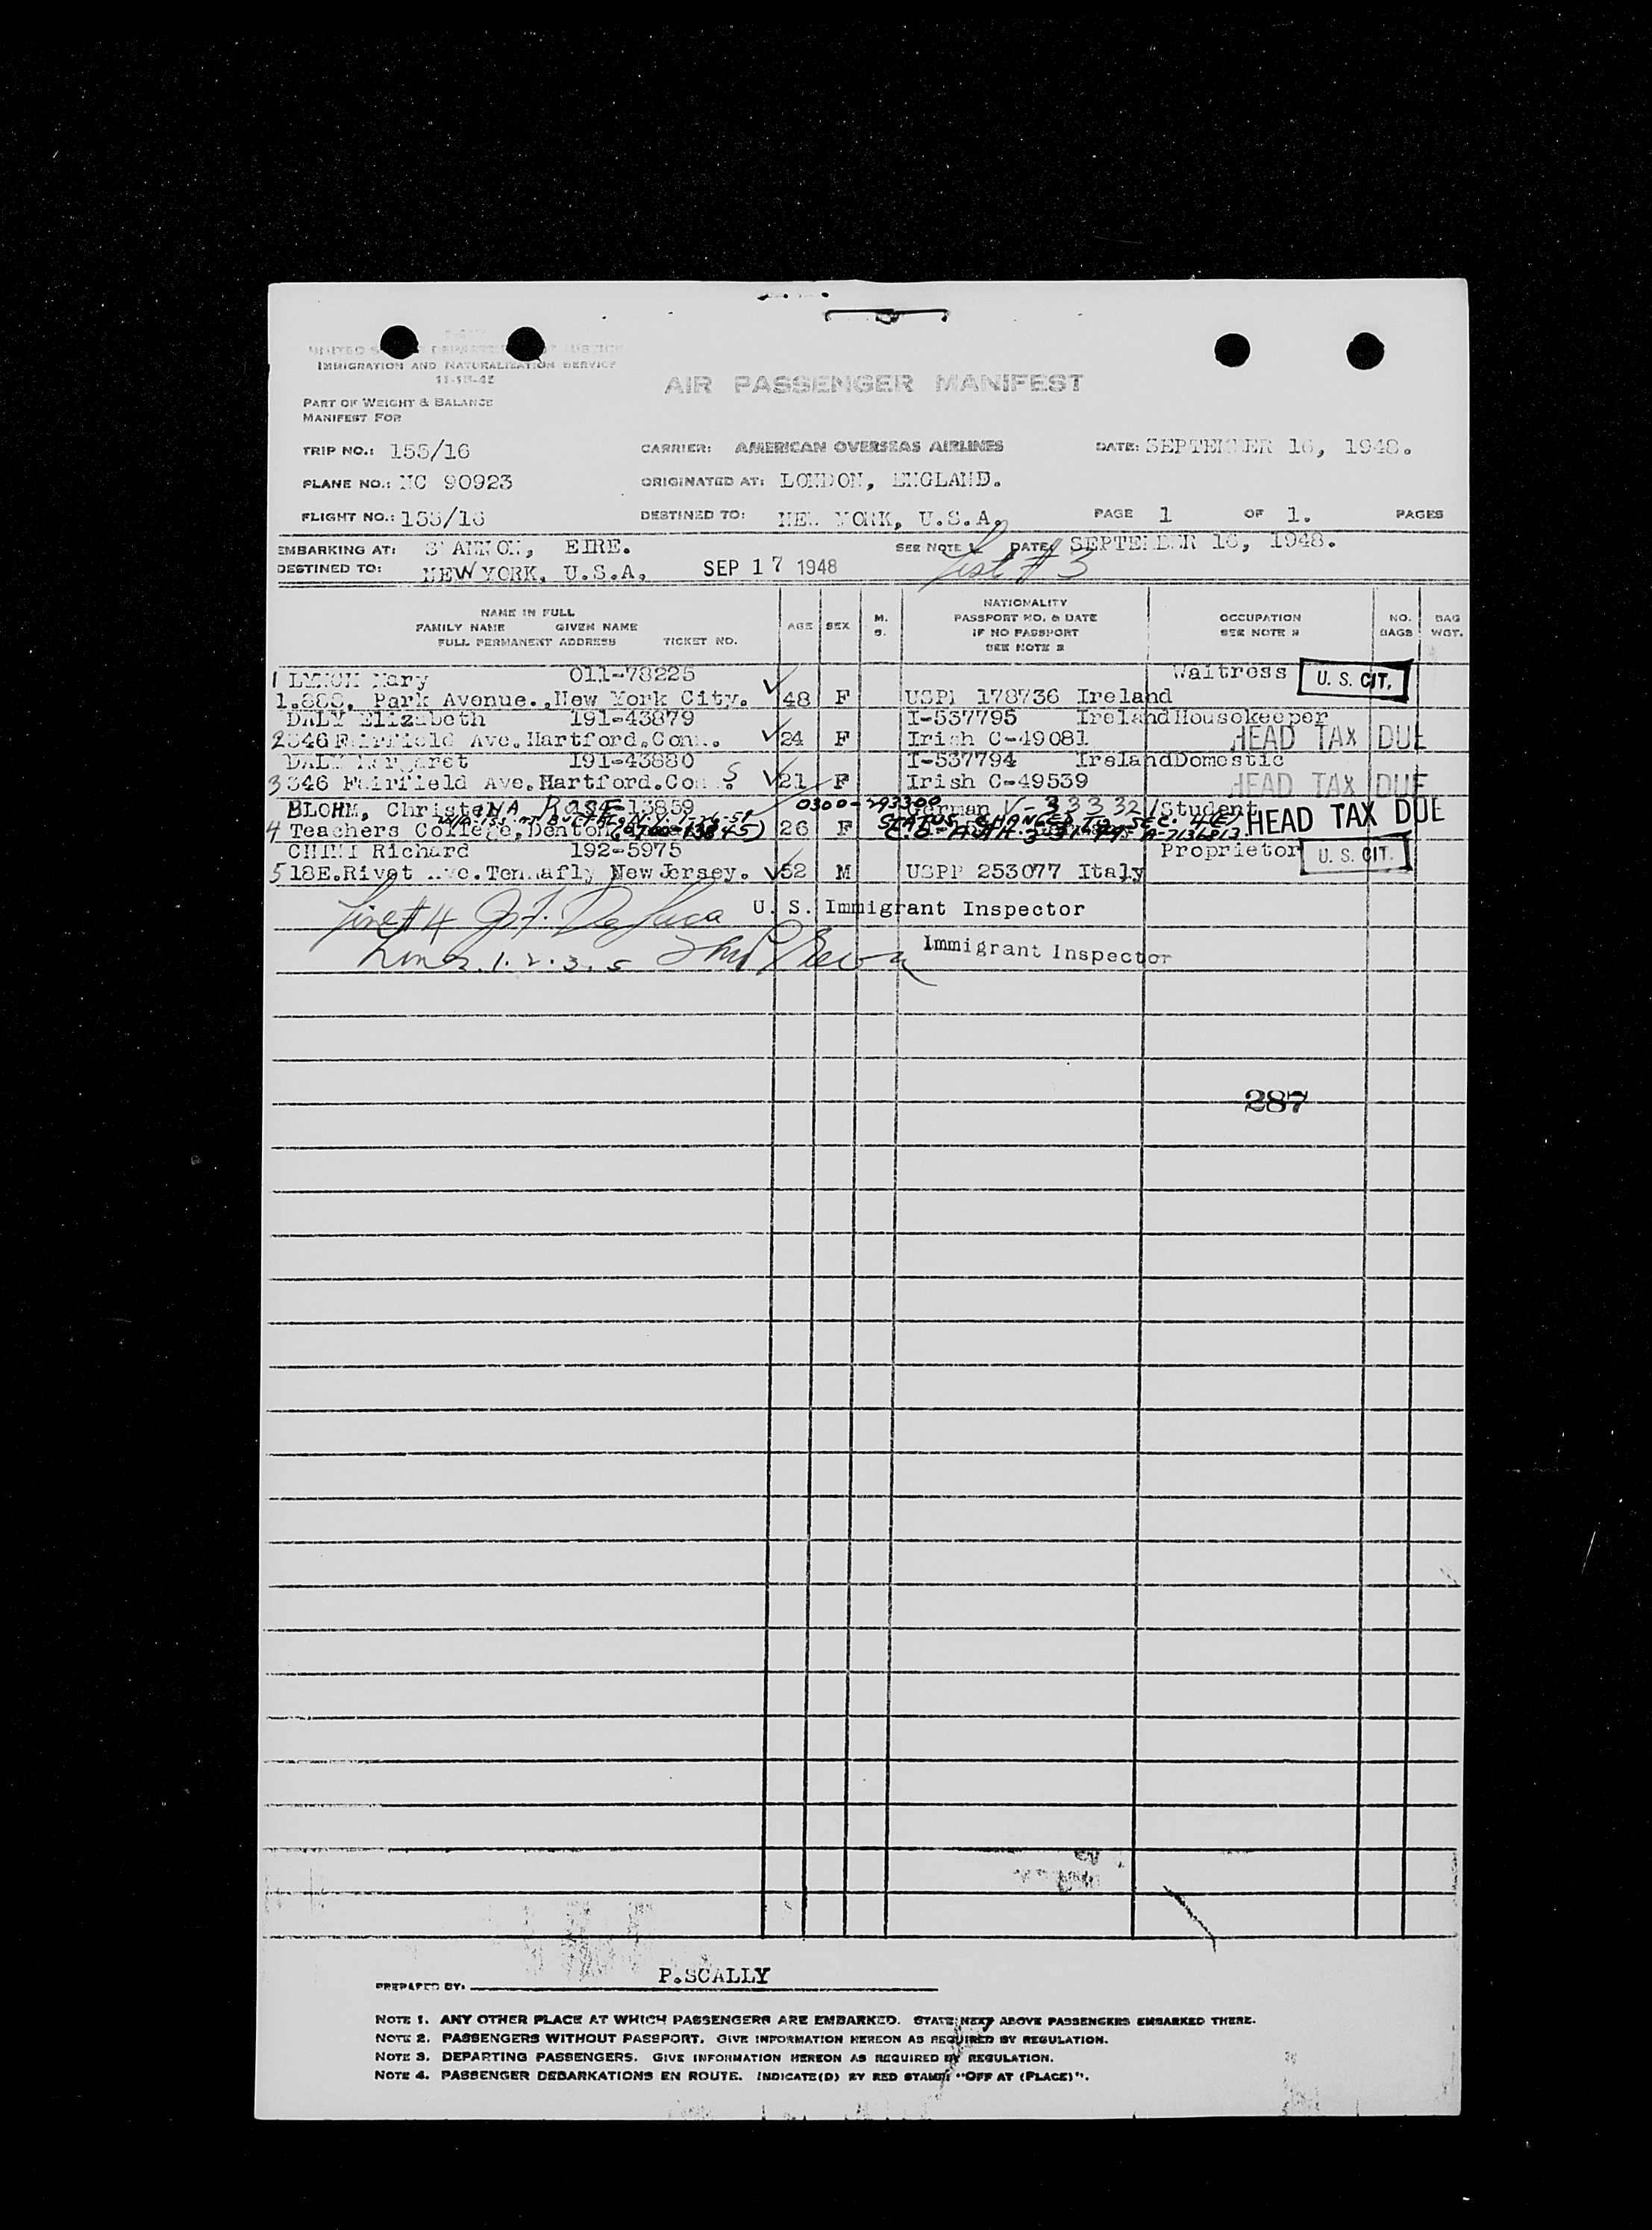 UNITED S DEPARTMENT OF JUSTICE
IMMIGRATION AND NATURALIZATION SERVICE
AIR PASSENGER MANIFEST
PART OF WEIGHT & BALANCE
MANIFEST FOR
TRIP NO.: 155/16 CARRIER: AMERICAN OVERSEAS AIRLINES DATE: SEPTEMBER 16, 1948.
PLANE NO.: NC 90923 ORIGINATED AT: LONDON, ENGLAND.
FLIGHT NO.: 155/16 DESTINED TO: NEW YORK, U.S.A. PAGE 1 OF 1. PAGES
EMBARKING AT: SHANNON, EIRE. SEE NOTE 1 DATE: SEPTEMBER 16, 1948.
DESTINED TO: NEW YORK, U.S.A. SEP 17 1948 List # 3
NAME IN FULL
FAMILY NAME GIVEN NAME
FULL PERMANENT ADDRESS TICKET NO.
AGE SEX M. S.
NATIONALITY
PASSPORT NO. & DATE
IF NO PASSPORT
SEE NOTE 2
OCCUPATION
SEE NOTE 3
NO. BAGS
BAG WGT.
1 LYNCH Mary 011-78225 Waitress U. S. CIT.
1.888, Park Avenue., New York City. 48 F USPP 178736 Ireland
DALY Elizabeth 191-43879 I-537795 Ireland Housekeeper
2 346 Fairfield Ave. Hartford. Conn. 24 F Irish C-49081 HEAD TAX DUE
DALY Margaret 191-43880 I-537794 Ireland Domestic
3 346 Fairfield Ave. Hartford. Conn. S 21 F Irish C-49539 HEAD TAX DUE
BLOHM, Christa INA ROSE 13859 0300-293300 German V-333321 Student
4 Teachers College, Denton (0700-13845) 26 F STATUS CHANGED TO SEC. 4(E) A-7136813 HEAD TAX DUE
CHINI Richard 192-5975 Proprietor U. S. CIT.
5 18E. Rivet Ave. Tennafly New Jersey. 52 M USPP 253077 Italy
Line # 4 De Luca U. S. Immigrant Inspector
Lines 1. 2. 3. 5 Immigrant Inspector
287
PREPARED BY: P.SCALLY
NOTE 1. ANY OTHER PLACE AT WHICH PASSENGERS ARE EMBARKED. STATE NEXT ABOVE PASSENGERS EMBARKED THERE.
NOTE 2. PASSENGERS WITHOUT PASSPORT. GIVE INFORMATION HEREON AS REQUIRED BY REGULATION.
NOTE 3. DEPARTING PASSENGERS. GIVE INFORMATION HEREON AS REQUIRED BY REGULATION.
NOTE 4. PASSENGER DEBARKATIONS EN ROUTE. INDICATE(D) BY RED STAMP "OFF AT (PLACE)".